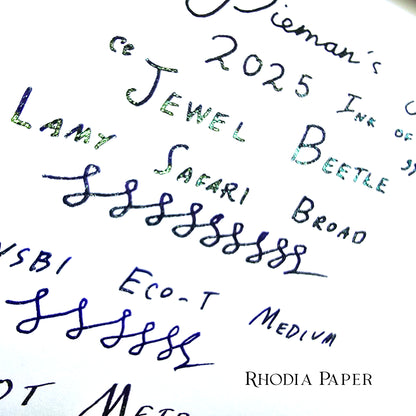 Dieman's
2025 Ink of
Jewel Beetle
Lamy Safari Broad
Eco-T Medium
Rhodia Paper